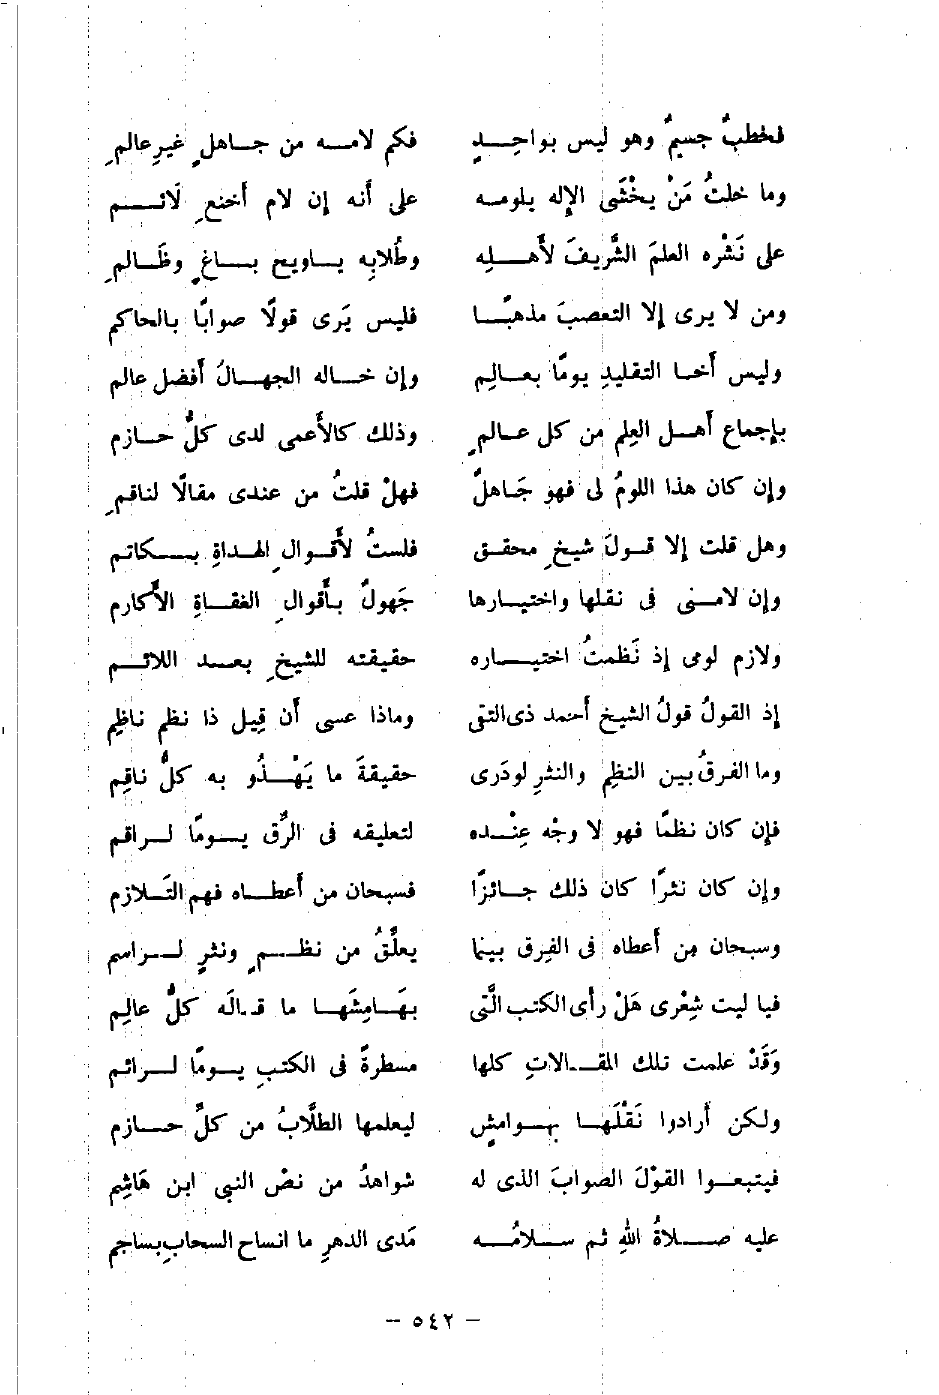 فخطبٌ جسيمٌ وهو ليس بواجِدٍ فكم لامه من جاهلٍ غيرِ عالمِ
وما خلتُ مَنْ يخْشَى الإله يلومه على أنه إن لام أخنعِ لَائم
على نَشْره العلمَ الشَّريفَ لأَهلِه وطُلابِه ياويح باغٍ وظَالمِ
ومن لا يرى إلا التعصبَ مذهبًا فليس يَرى قولًا صوابًا بالحاكم
وليس أخا التقليدِ يومًا بعالِم وإن خاله الجهالُ أفضل عالم
بإجماع أهل العِلم من كل عالمٍ وذلك كالأَعمى لدى كلُّ حازم
وإن كان هذا اللومُ لى فهو جَاهلٌ فهلْ قلتُ من عندى مقالًا لناقمِ
وهل قلت إلا قولَ شيخِ محقق فلستُ لأَقوالِ الهداةِ بكاتم
وإن لامنى فى نقلها واختيارها جَهولٌ بأَقوالِ الفقاةِ الأَكارم
ولازم لومى إذ نَظمتُ اختياره حقيقته للشيخِ بعد اللائم
إذ القولُ قولُ الشيخ أحمد ذى التقى وماذا عسى أن قِيل ذا نظم ناظِم
وما الفرقُ بين النظِم والنثرِ لو دَرى حقيقةَ ما يَهْذُو به كلُّ ناقِم
فإن كان نظمًا فهو لا وجْه عِنْده لتعليقه فى الرِّق يومًا لراقم
وإن كان نثرًا كان ذلك جائزًا فسبحان من أعطاه فهم التَلازم
وسبحان مِن أَعطاه فى الفِرق بينما يعلَّقُ من نظمٍ ونثرٍ لراسم
فيا ليت شِعْرى هَلْ رأى الكتب الَّتى بهَامِشَها ما قالَه كلُّ عالِم
وَقَدْ علمت تلك المقالاتِ كلها مسطرةً فى الكتبِ يومًا لرائم
ولكن أرادوا نَقْلَها بهوامشٍ ليعلمها الطلَّابُ من كلِّ حازم
فيتبعوا القوْلَ الصوابَ الذى له شواهدُ من نصّ النبى ابن هَاشِم
عليه صلاةُ اللهِ ثم سلامُه مَدى الدهرِ ما انساح السحابِ بساجم
- ٥٤٢ -